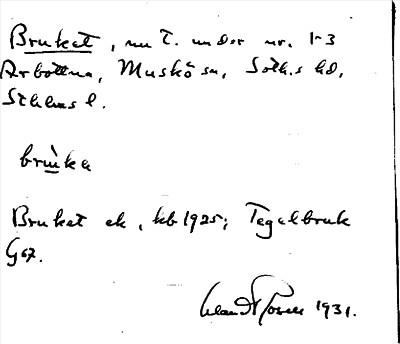 Bruket, nu t. under nr. 1-3
Arbottna, Muskö sn, Soth.s hd,
Sthlms l.
brùka
Bruket ek, kb 1925; Tegelbruk
G67.
1931.